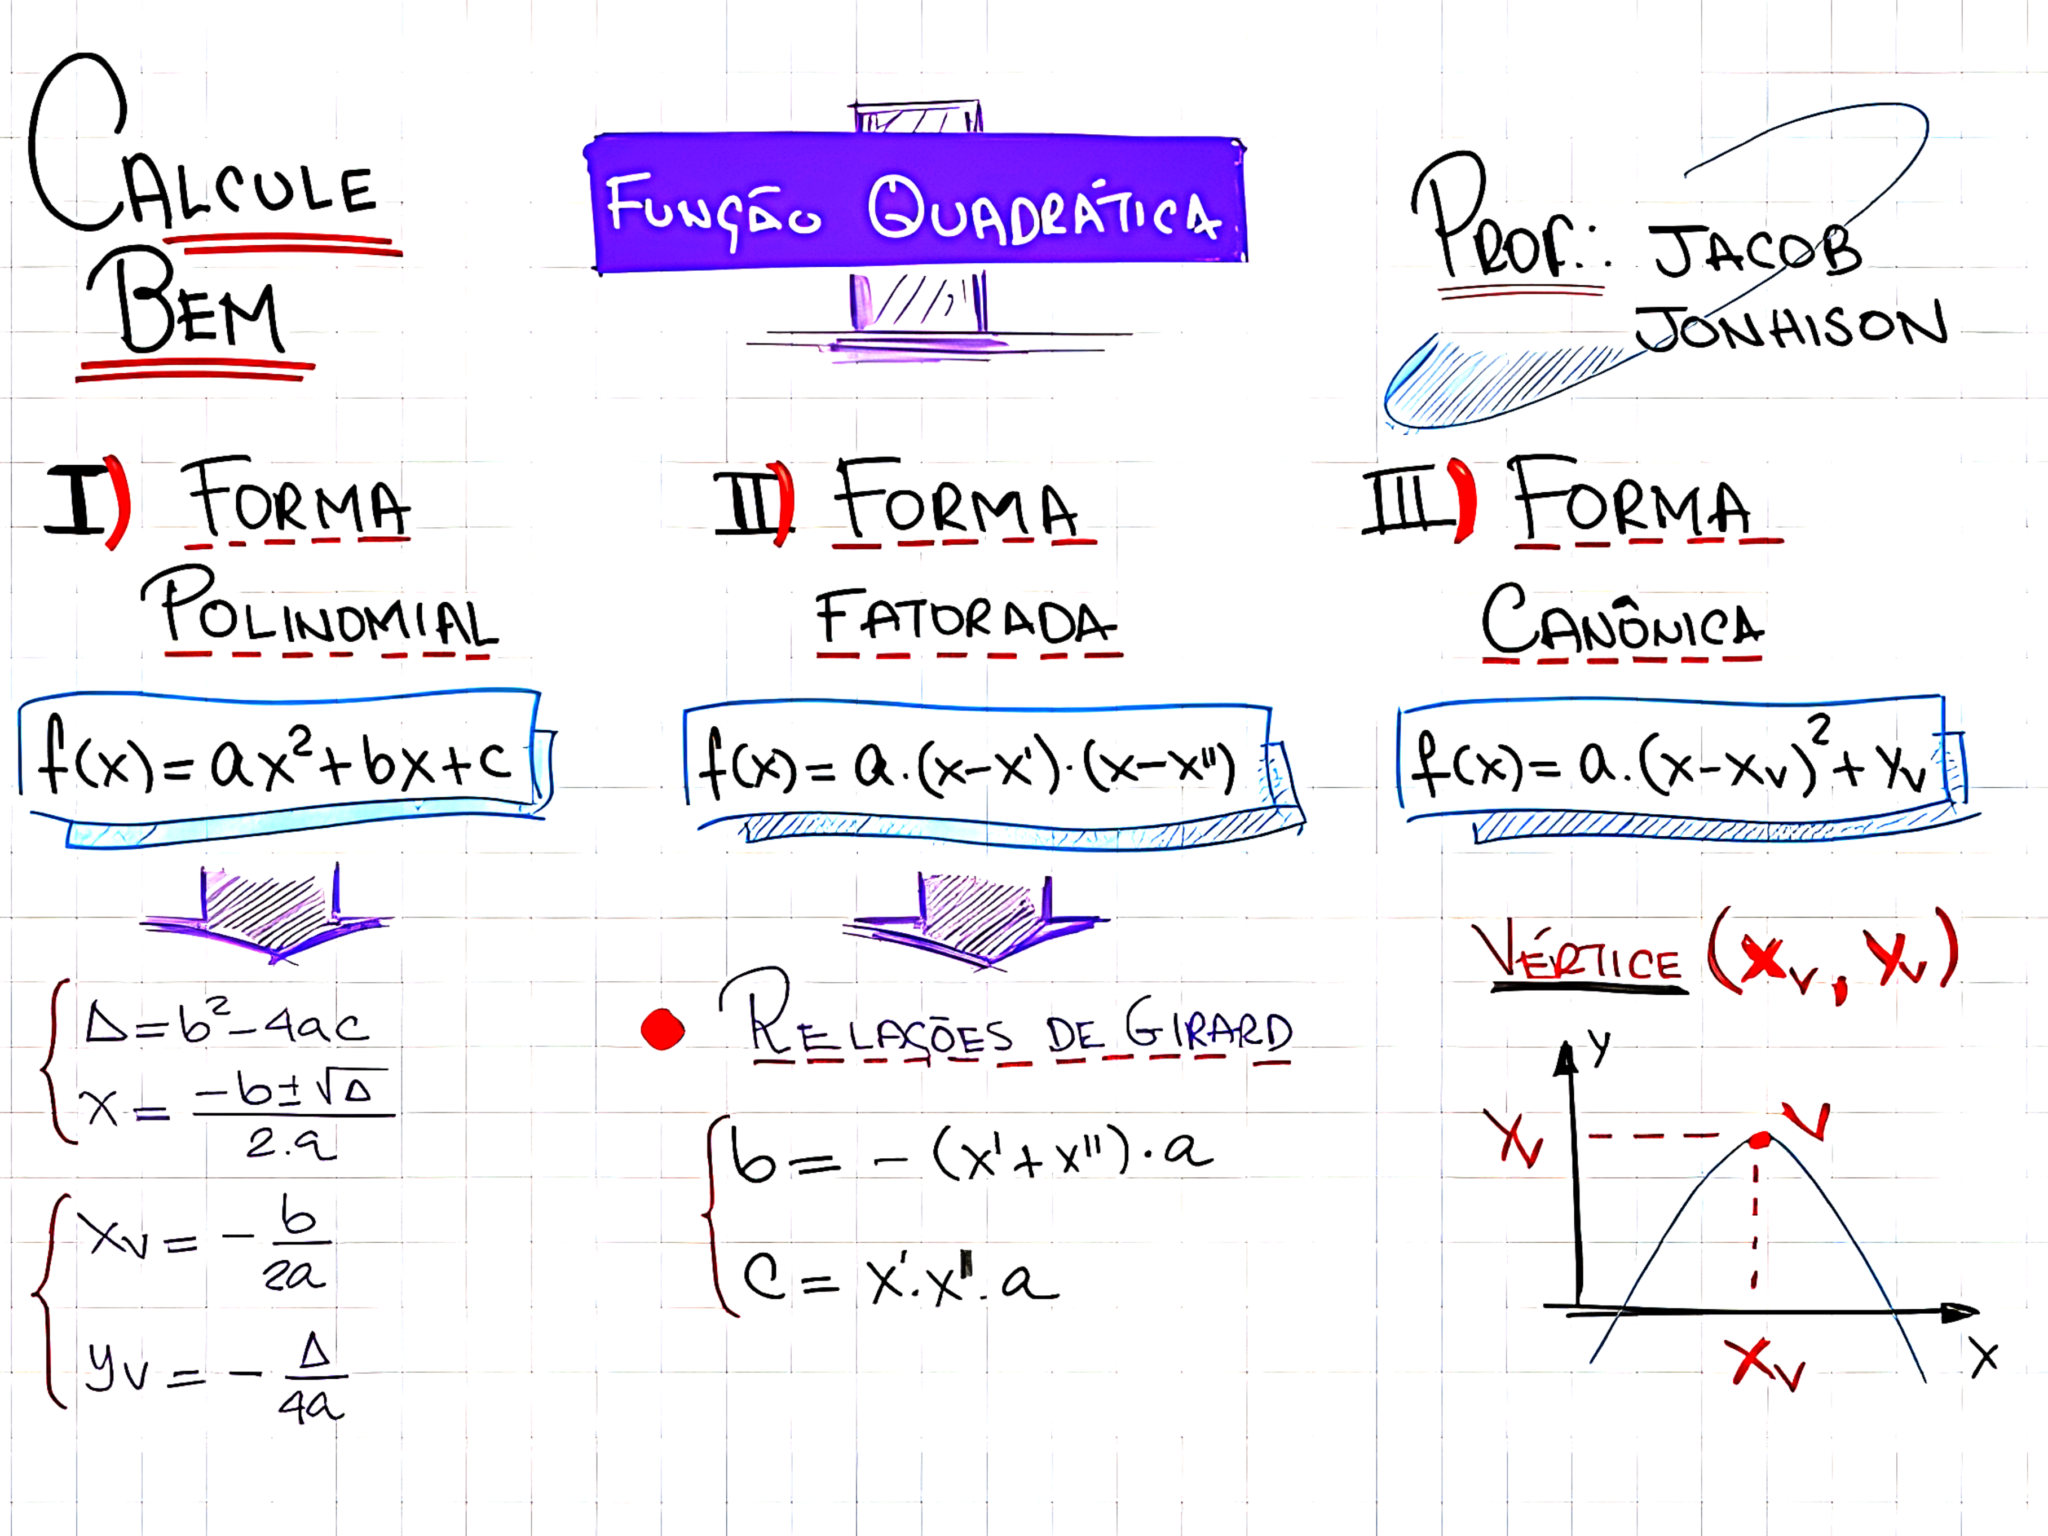 CALCULE
BEM
FUNÇÃO QUADRÁTICA
PROF.: JACOB
JONHISON
I) FORMA
POLINOMIAL
f(x)=ax²+bx+c
Δ=b²-4ac
x = (-b±√Δ)/(2.a)
xv = - b/2a
yv = - Δ/4a
II) FORMA
FATORADA
f(x)= a.(x-x').(x-x'')
RELAÇÕES DE GIRARD
b = - (x'+x'').a
c = x'.x''.a
III) FORMA
CANÔNICA
f(x)= a.(x-xv)²+yv
VÉRTICE (xv, yv)
y
yv
V
xv
x